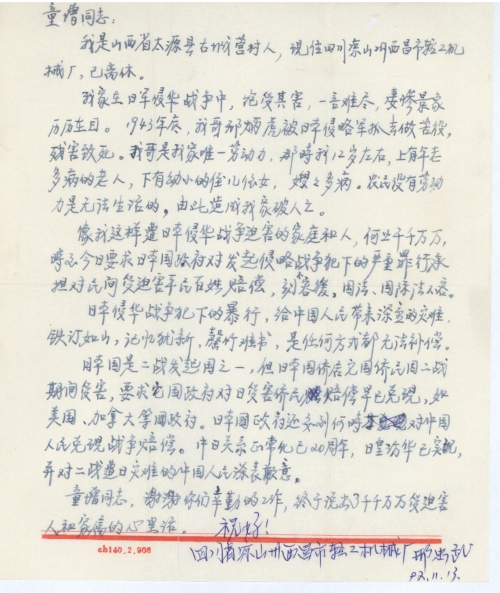 童增同志：
我是山西省太原县古城营村人，现住四川凉山州西昌市轻工机
械厂，已离休。
我家在日军侵华战争中，饱受其害，一言难尽，凄惨景象
历历在目。1943年冬，我哥祁炳虎被日本侵略军抓去做苦役，
残害致死。我哥是我家唯一劳动力，那时我12岁左右，上有年老
多病的老人，下有幼小的侄儿侄女，嫂嫂多病。农民没有劳动
力是无法生活的，由此造成我家破人亡。
像我这样遭日本侵华战争迫害的家庭和人，何止千千万万，
时至今日要求日本国政府对发起侵略战争犯下的严重罪行承
担对民间受迫害平民百姓赔偿，刻不容缓，国法、国际法人容。
日本侵华战争犯下的暴行，给中国人民带来深重的灾难，
铁汀如山，记忆犹新，罄竹难书，是任何方式都无法补偿。
日本国是二战发起国之一，但日本国侨居它国侨民因二战
期间受害，要求它国政府对日受害侨民赔偿早已兑现，如
美国、加拿大等国政府。日本国政府还要到何时对中国
人民兑现战争赔偿。中日关系正常化已20周年，日皇访华已实现，
并对二战遭日灾难的中国人民深表歉意。
童增同志，谢谢你们辛勤的工作，终于说出了千千万万受迫害
人和家庭的心里话。
祝好！
四川省凉山州西昌市轻工机械厂
92.11.13.
ch140.2.906